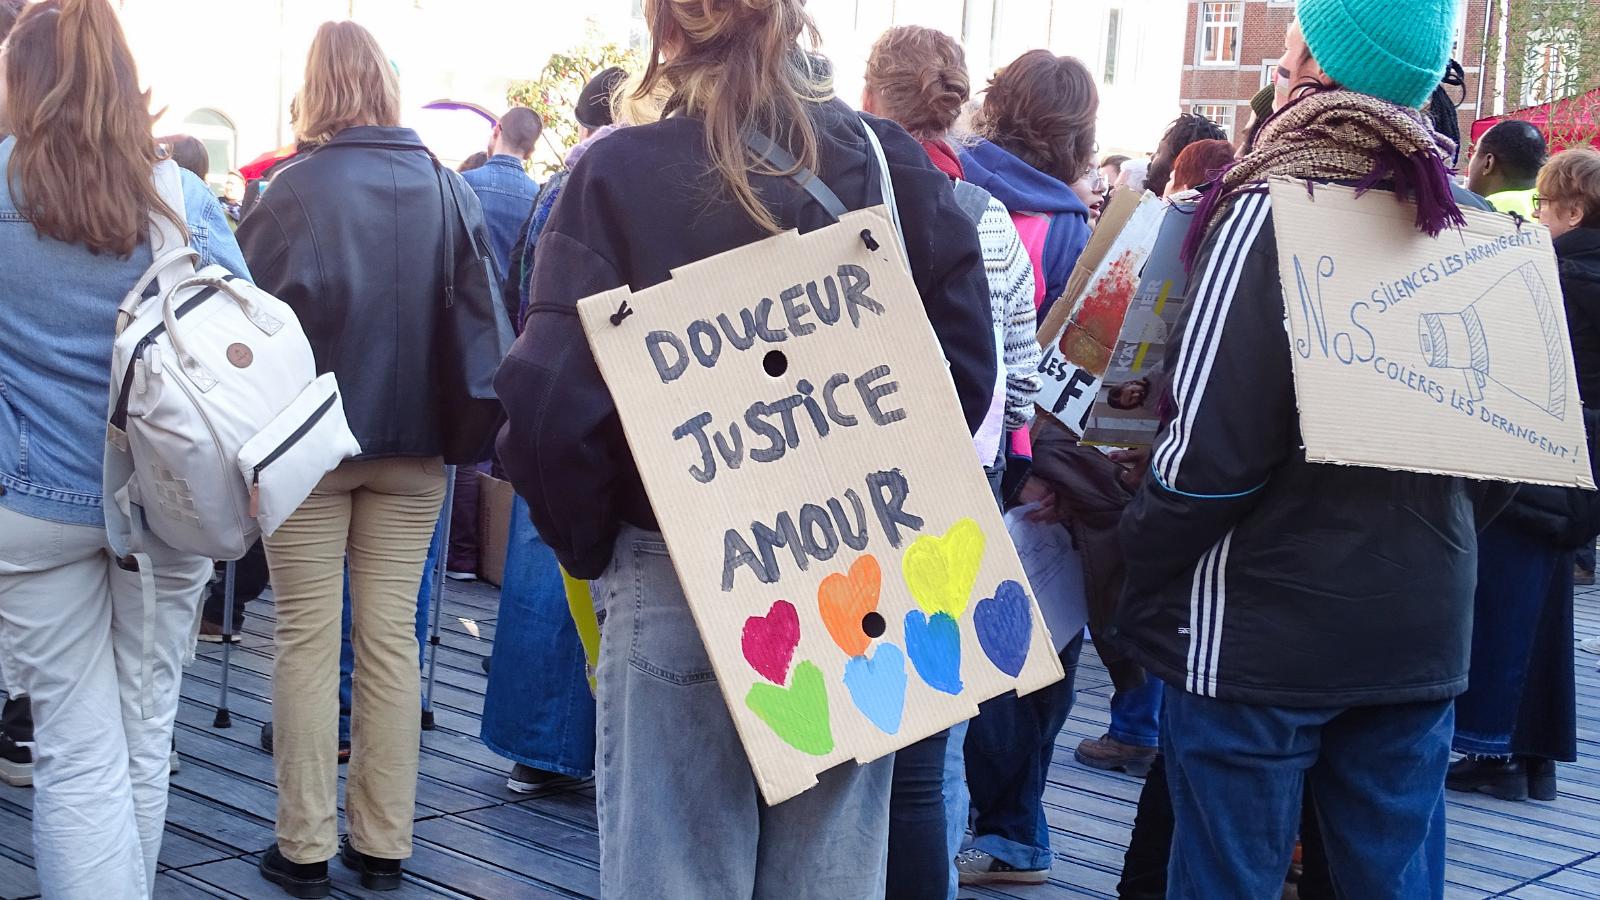 DOUCEUR
JUSTiCE
AMOUR
NOS
SiLENCES LES ARRANGENT !
COLÈRES LES DERANGENT !
LES F